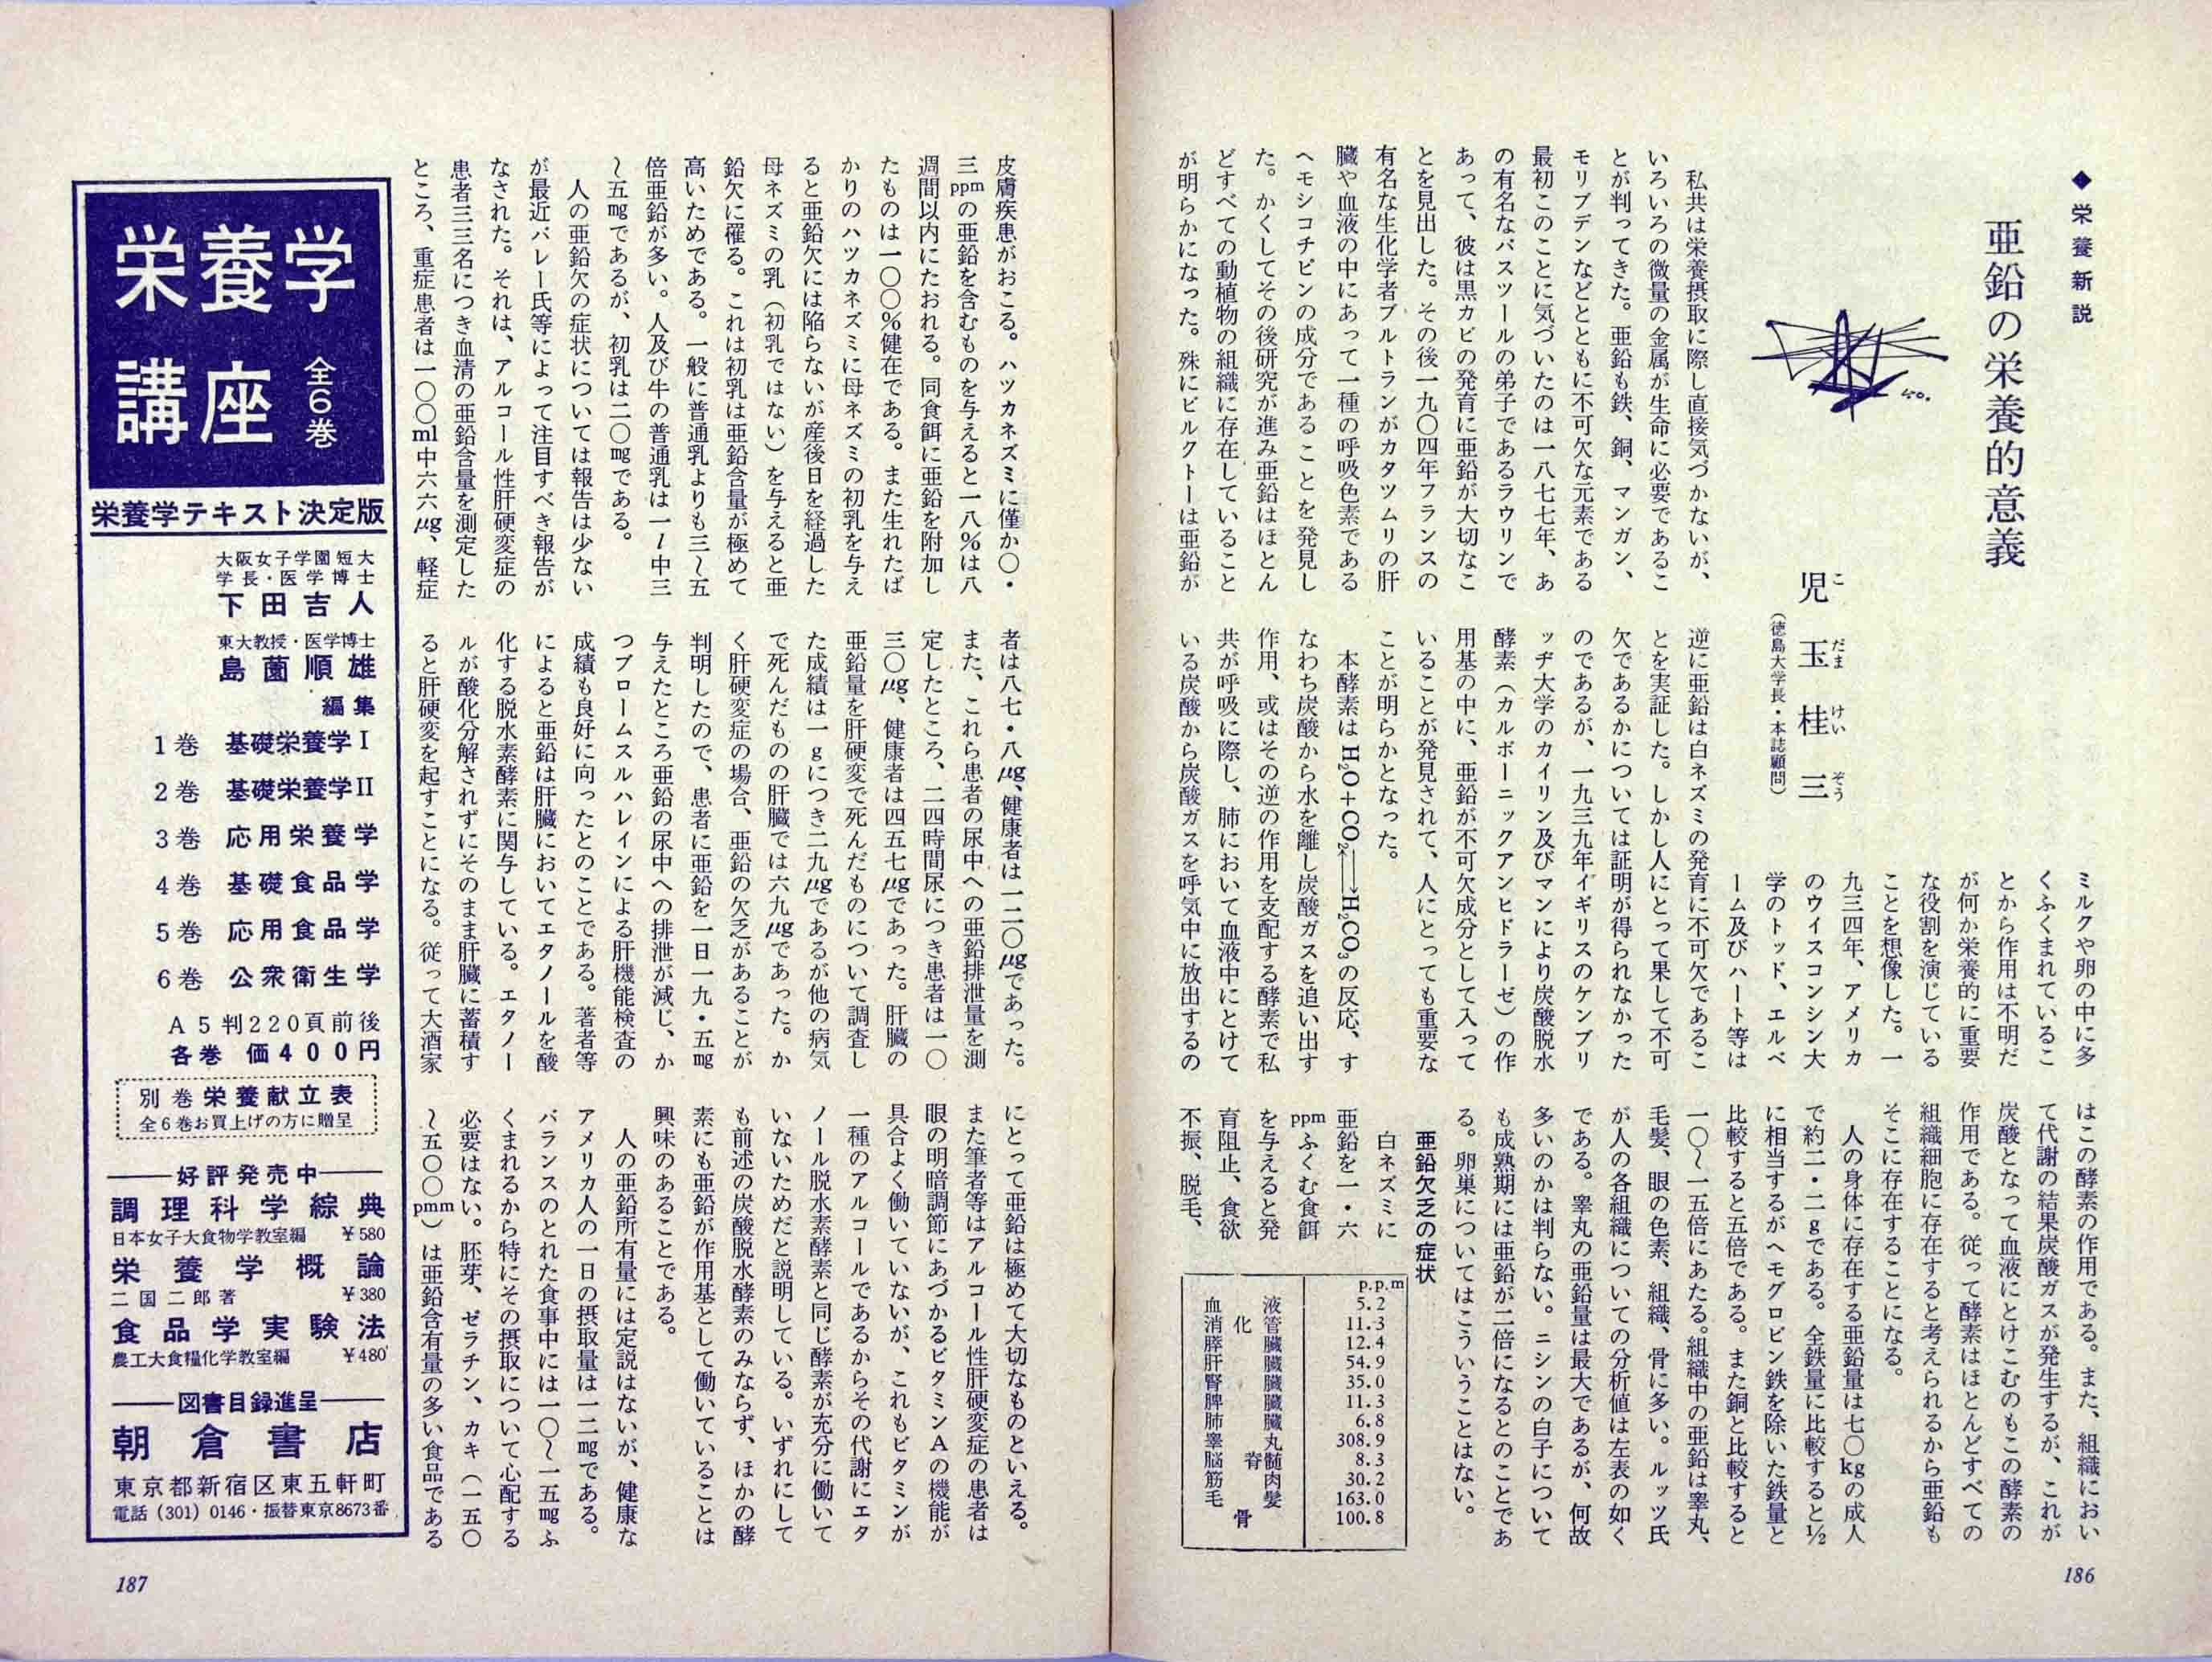 ◆栄養新説
亜鉛の栄養的意義
児玉桂三
こ だま けい ぞう
(徳島大学長・本誌顧問)
私共は栄養摂取に際し直接気づかないが、
いろいろの微量の金属が生命に必要であるこ
とが判ってきた。亜鉛も鉄、銅、マンガン、
モリブデンなどとともに不可欠な元素である
最初このことに気づいたのは一八七七年、あ
の有名なパスツールの弟子であるラウリンで
あって、彼は黒カビの発育に亜鉛が大切なこ
とを見出した。その後一九〇四年フランスの
有名な生化学者ブルトランがカタツムリの肝
臓や血液の中にあって一種の呼吸色素である
ヘモシコチピンの成分であることを発見し
た。かくしてその後研究が進み亜鉛はほとん
どすべての動植物の組織に存在していること
が明らかになった。殊にビルクトーは亜鉛が
ミルクや卵の中に多
くふくまれているこ
とから作用は不明だ
が何か栄養的に重要
な役割を演じている
ことを想像した。一
九三四年、アメリカ
のウイスコンシン大
学のトッド、エルベ
ーム及びハート等は
逆に亜鉛は白ネズミの発育に不可欠であるこ
とを実証した。しかし人にとって果して不可
欠であるかについては証明が得られなかった
のであるが、一九三九年イギリスのケンブリ
ッヂ大学のカイリン及びマンにより炭酸脱水
酵素(カルボーニックアンヒドラーゼ)の作
用基の中に、亜鉛が不可欠成分として入って
いることが発見されて、人にとっても重要な
ことが明らかとなった。
本酵素は H₂O+CO₂⇄H₂CO₃の反応、す
なわち炭酸から水を離し炭酸ガスを追い出す
作用、或はその逆の作用を支配する酵素で私
共が呼吸に際し、肺において血液中にとけて
いる炭酸から炭酸ガスを呼気中に放出するの
はこの酵素の作用である。また、組織におい
て代謝の結果炭酸ガスが発生するが、これが
炭酸となって血液にとけこむのもこの酵素の
作用である。従って酵素はほとんどすべての
組織細胞に存在すると考えられるから亜鉛も
そこに存在することになる。
人の身体に存在する亜鉛量は七〇kgの成人
で約二・二gである。全鉄量に比較すると½
に相当するがヘモグロビン鉄を除いた鉄量と
比較すると五倍である。また銅と比較すると
一〇〜一五倍にあたる。組織中の亜鉛は睾丸、
毛髪、眼の色素、組織、骨に多い。ルッツ氏
が人の各組織についての分析値は左表の如く
である。睾丸の亜鉛量は最大であるが、何故
多いのかは判らない。ニシンの白子について
も成熟期には亜鉛が二倍になるとのことであ
る。卵巣についてはこういうことはない。
亜鉛欠乏の症状
白ネズミに
亜鉛を一・六
ppmふくむ食餌
を与えると発
育阻止、食欲
不振、脱毛、
p.p.m
血液 5.2
消化管 11.3
膵臓 12.4
肝臓 54.9
腎臓 35.0
脾臓 11.3
肺臓 6.8
睾丸 308.9
脳脊髄 8.3
筋肉 30.2
毛髪 163.0
骨 100.8
186
皮膚疾患がおこる。ハツカネズミに僅か〇・
三ppmの亜鉛を含むものを与えると一八%は八
週間以内にたおれる。同食餌に亜鉛を附加し
たものは一〇〇%健在である。また生れたば
かりのハツカネズミに母ネズミの初乳を与え
ると亜鉛欠には陥らないが産後日を経過した
母ネズミの乳(初乳ではない)を与えると亜
鉛欠に罹る。これは初乳は亜鉛含量が極めて
高いためである。一般に普通乳よりも三〜五
倍亜鉛が多い。人及び牛の普通乳は一l中三
〜五mgであるが、初乳は二〇mgである。
人の亜鉛欠の症状については報告は少ない
が最近バレー氏等によって注目すべき報告が
なされた。それは、アルコール性肝硬変症の
患者三三名につき血清の亜鉛含量を測定した
ところ、重症患者は一〇〇ml中六六μg、軽症
者は八七・八μg、健康者は一二〇μgであった。
また、これら患者の尿中への亜鉛排泄量を測
定したところ、二四時間尿につき患者は一〇
三〇μg、健康者は四五七μgであった。肝臓の
亜鉛量を肝硬変で死んだものについて調査し
た成績は一gにつき二九μgであるが他の病気
で死んだものの肝臓では六九μgであった。か
く肝硬変症の場合、亜鉛の欠乏があることが
判明したので、患者に亜鉛を一日一九・五mg
与えたところ亜鉛の尿中への排泄が減じ、か
つブロームスルハレインによる肝機能検査の
成績も良好に向ったとのことである。著者等
によると亜鉛は肝臓においてエタノールを酸
化する脱水素酵素に関与している。エタノー
ルが酸化分解されずにそのまま肝臓に蓄積す
ると肝硬変を起すことになる。従って大酒家
にとって亜鉛は極めて大切なものといえる。
また筆者等はアルコール性肝硬変症の患者は
眼の明暗調節にあづかるビタミンAの機能が
具合よく働いていないが、これもビタミンが
一種のアルコールであるからその代謝にエタ
ノール脱水素酵素と同じ酵素が充分に働いて
いないためだと説明している。いずれにして
も前述の炭酸脱水酵素のみならず、ほかの酵
素にも亜鉛が作用基として働いていることは
興味のあることである。
人の亜鉛所有量には定説はないが、健康な
アメリカ人の一日の摂取量は一二mgである。
バランスのとれた食事中には一〇〜一五mgふ
くまれるから特にその摂取について心配する
必要はない。胚芽、ゼラチン、カキ(一五〇
〜五〇〇pmm)は亜鉛含有量の多い食品である
栄養学
講座 全6巻
栄養学テキスト決定版
大阪女子学園短大
学長・医学博士
下田吉人
東大教授・医学博士
島薗順雄
編集
1巻 基礎栄養学Ⅰ
2巻 基礎栄養学Ⅱ
3巻 応用栄養学
4巻 基礎食品学
5巻 応用食品学
6巻 公衆衛生学
A5判220頁前後
各巻 価400円
別巻 栄養献立表
全6巻お買上げの方に贈呈
好評発売中
調理科学綜典
日本女子大食物学教室編 ¥580
栄養学概論
二国二郎著 ¥380
食品学実験法
農工大食糧化学教室編 ¥480
図書目録進呈
朝倉書店
東京都新宿区東五軒町
電話(301)0146・振替東京8673番
187